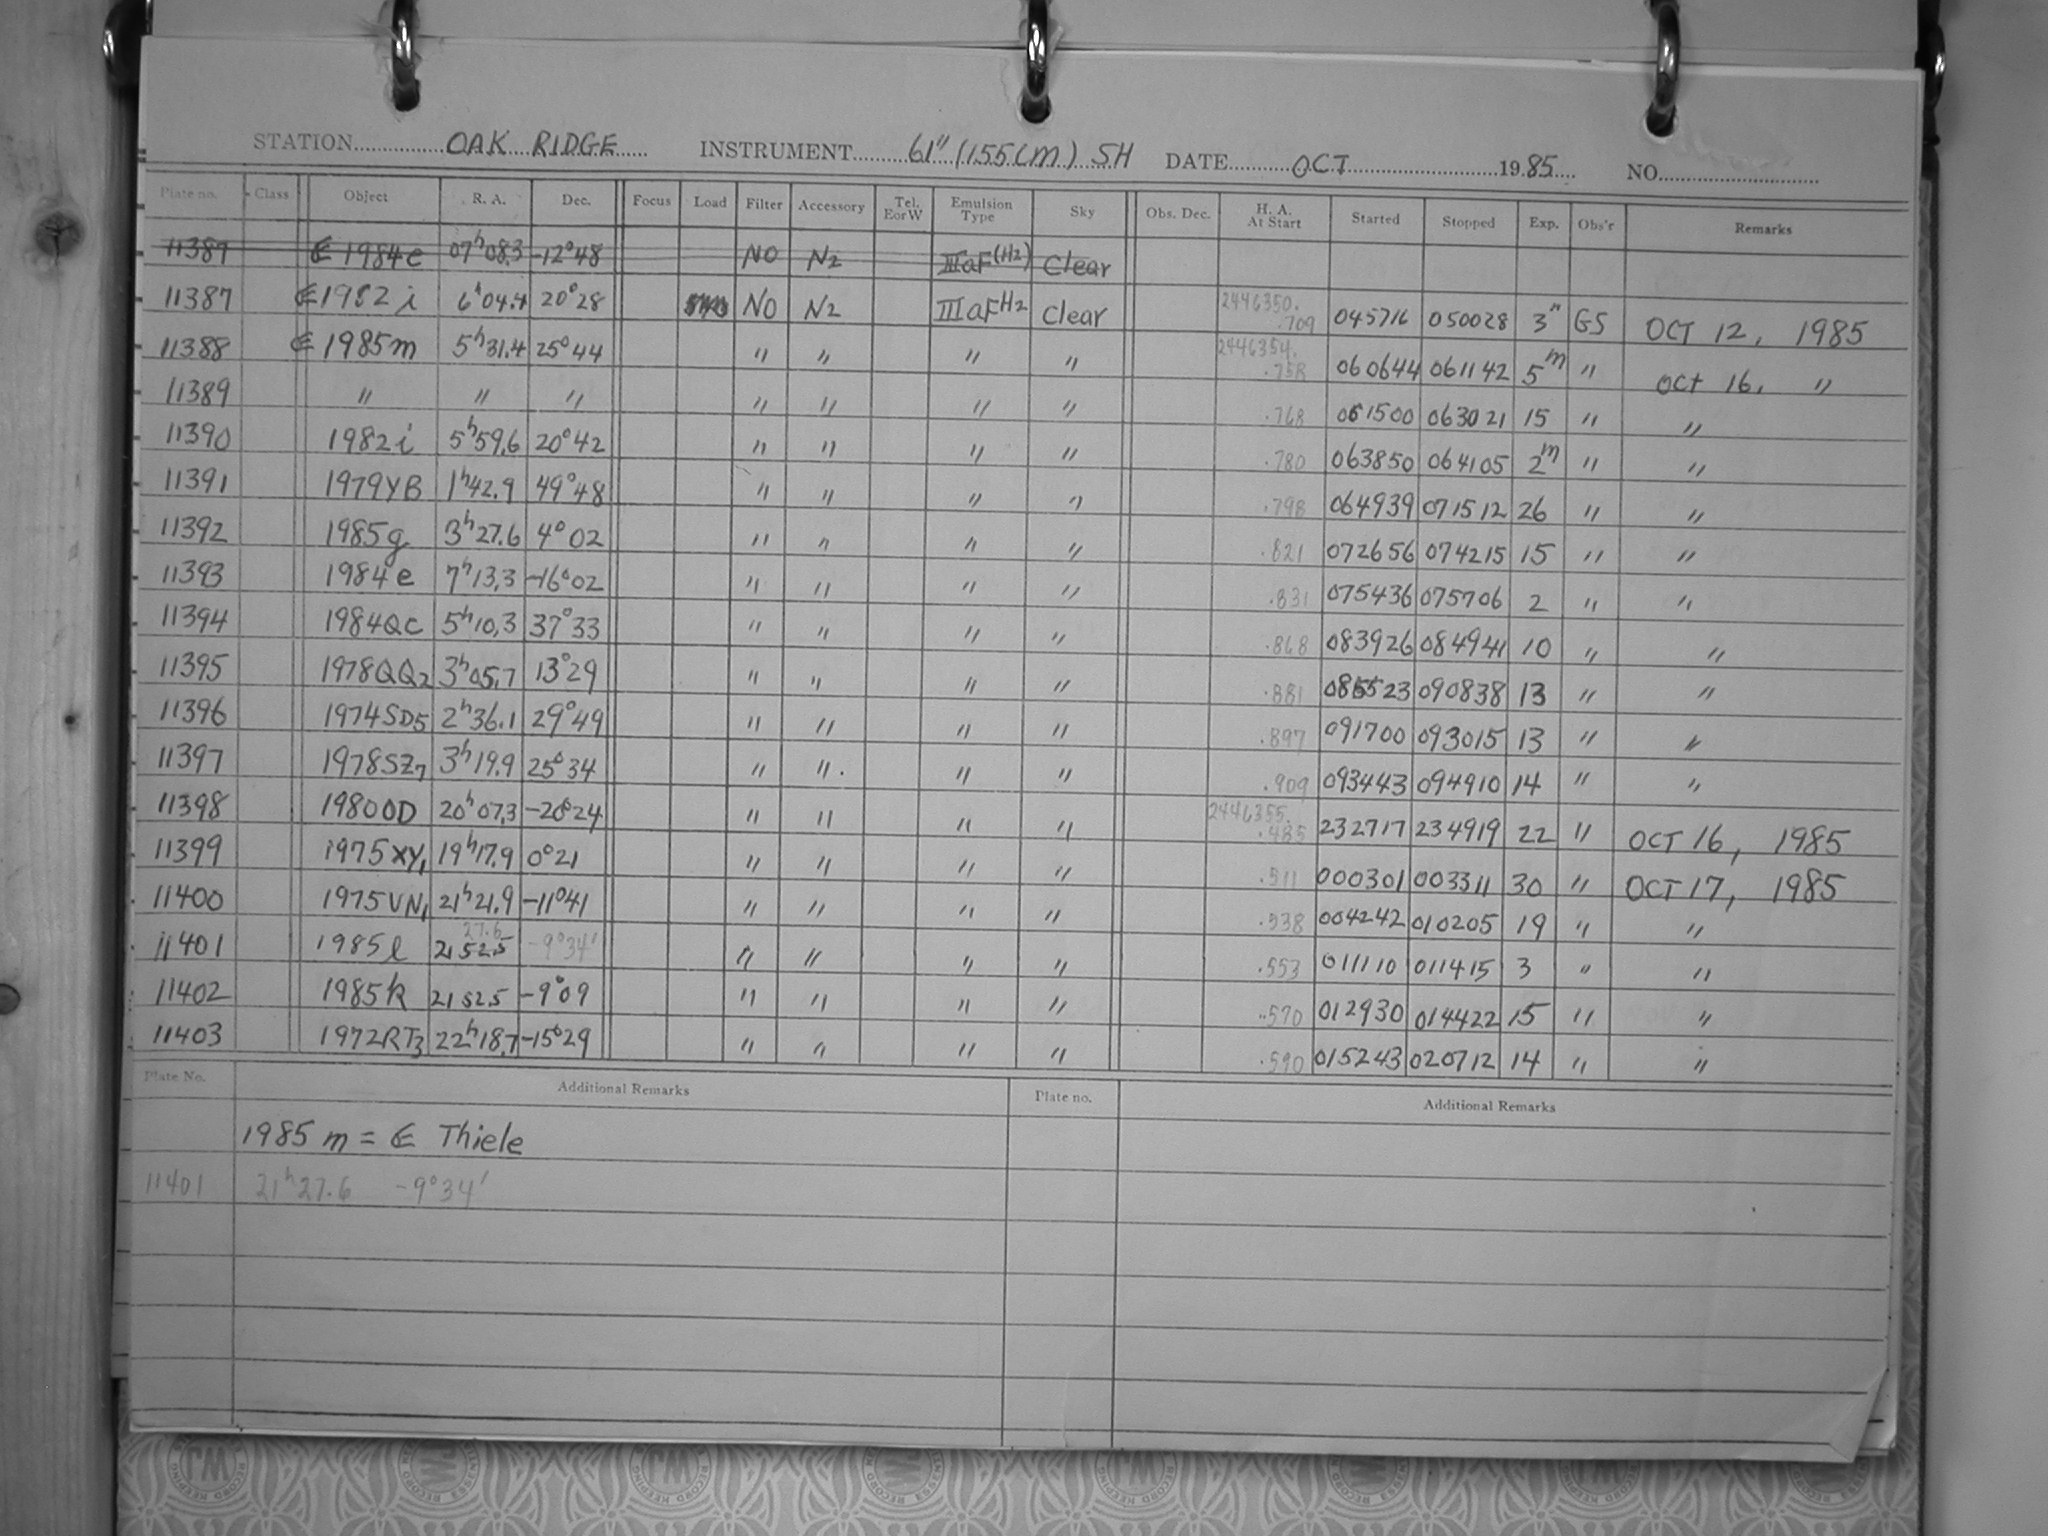 STATION OAK RIDGE INSTRUMENT 61" (155cm) SH DATE OCT 1985 NO.
Plate no. Class Object R. A. Dec. Focus Load Filter Accessory Tel. E or W Emulsion Type Sky Obs. Dec. H. A. At Start Started Stopped Exp. Obs'r Remarks
11387 € 1984e 07h08.3 -12°48 NO N2 IIIaF(H2) Clear
11387 € 1982i 6h04.4 20°28 NO N2 IIIaFH2 Clear 2446350. .709 045716 050028 3m GS OCT 12, 1985
11388 € 1985m 5h31.4 25°44 " " " " 2446354. .758 060644 061142 5m " Oct 16, "
11389 " " " " " " " .768 061500 063021 15 " "
11390 1982i 5h59.6 20°42 " " " " .780 063850 064105 2m " "
11391 1979YB 1h42.9 49°48 " " " " .798 064939 071512 26 " "
11392 1985g 3h27.6 4°02 " " " " .821 072656 074215 15 " "
11393 1984e 7h13.3 -16°02 " " " " .831 075436 075706 2 " "
11394 1984QC 5h10.3 37°33 " " " " .868 083926 084941 10 " "
11395 1978QQ2 3h05.7 13°29 " " " " .881 085523 090838 13 " "
11396 1974SD5 2h36.1 29°49 " " " " .897 091700 093015 13 " "
11397 1978SZ7 3h19.9 25°34 " " " " .909 093443 094910 14 " "
11398 1980OD 20h07.3 -20°24 " " " " 2446355. .485 232717 234919 22 " OCT 16, 1985
11399 1975XY1 19h17.9 0°21 " " " " .511 000301 003311 30 " OCT 17, 1985
11400 1975VN1 21h21.9 -11°41 " " " " .538 004242 010205 19 " "
11401 1985l 27.6 21 52.5 -9°34' " " " " .553 011110 011415 3 " "
11402 1985k 21 52.5 -9°09 " " " " .570 012930 014422 15 " "
11403 1972RT3 22h18.7 -15°29 " " " " .590 015243 020712 14 " "
Plate No. Additional Remarks Plate no. Additional Remarks
1985 m = € Thiele
11401 21h27.6 -9°34'